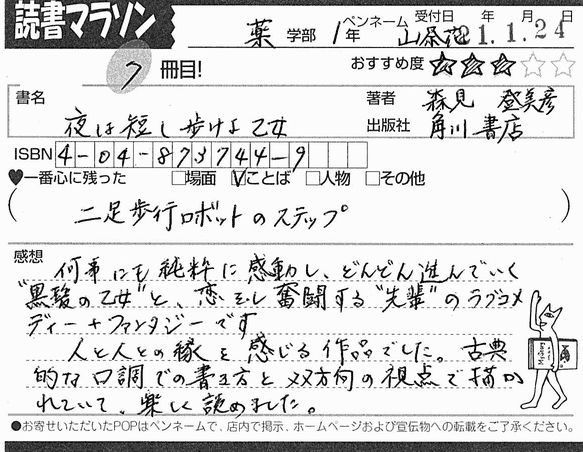 読書マラソン
薬 学部 1年 ペンネーム 山茶花 受付日 年 月 日 21.1.24
7 冊目! おすすめ度 ★★★☆☆
書名 著者 森見 登美彦
夜は短し歩けよ乙女 出版社 角川書店
ISBN 4-04-873744-9
♥一番心に残った □場面 ☑ことば □人物 □その他
(二足歩行ロボットのステップ)
感想
何事にも純粋に感動し、どんどん進んでいく
"黒髪の乙女"と、恋をし奮闘する"先輩"のラブコメ
ディー+ファンタジーです
人と人との縁を感じる作品でした。古典
的な口調での書き方と双方向の視点で描か
れていて、楽しく読めました。
●お寄せいただいたPOPはペンネームで、店内で掲示、ホームページおよび宣伝物への転載をご了承ください。